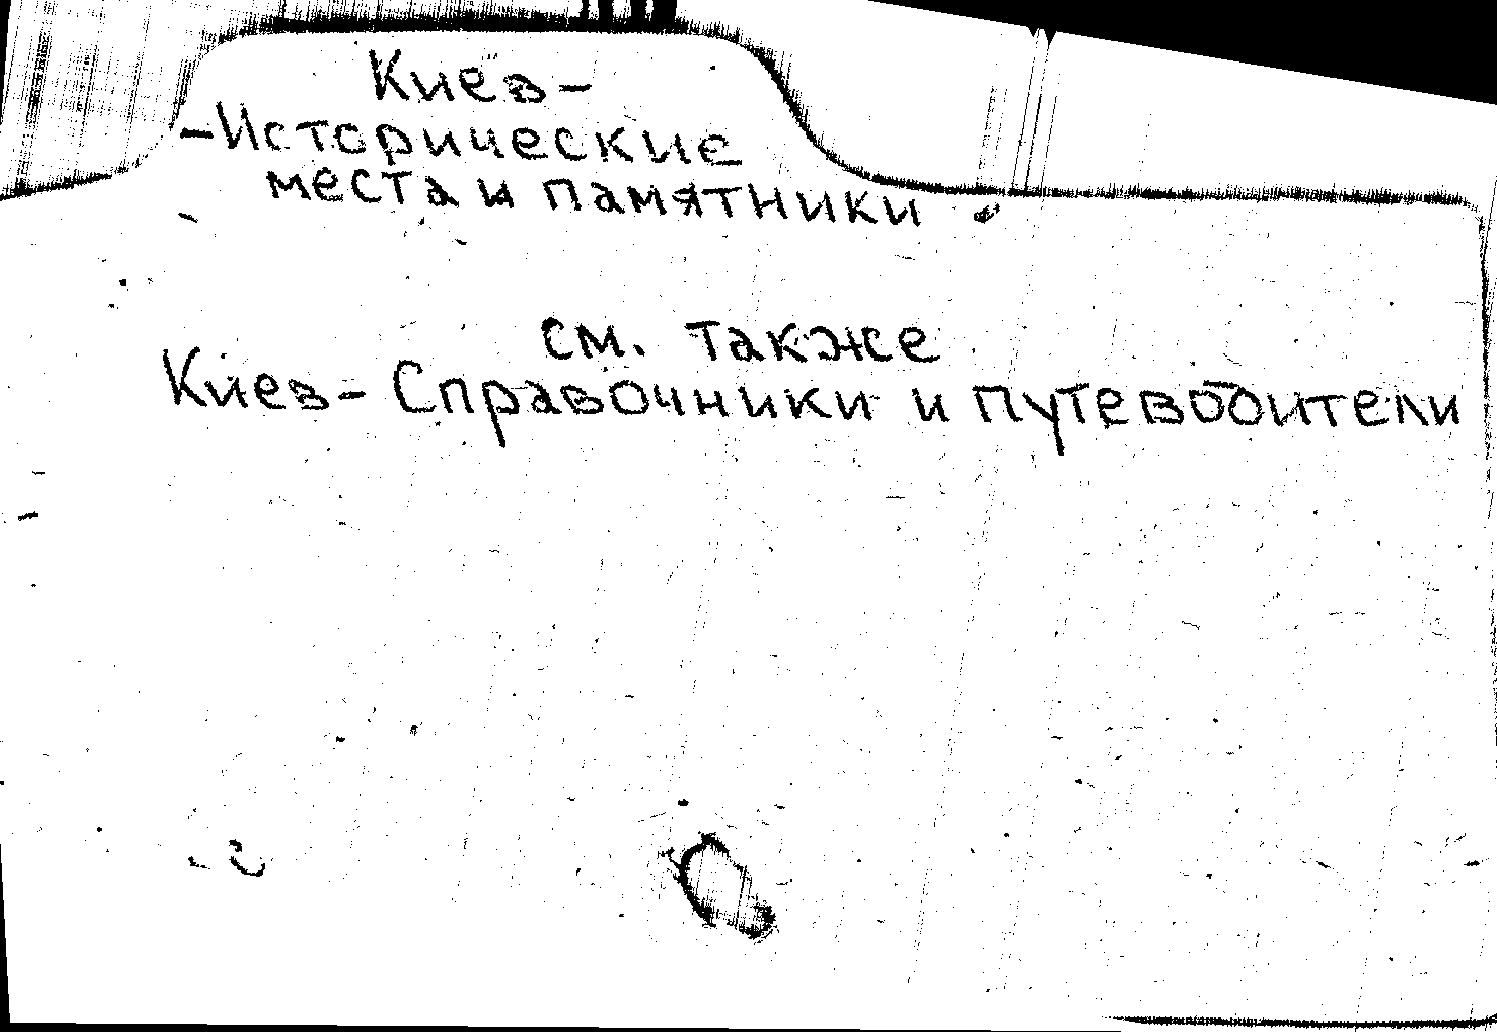 Киев-
-Исторические
места и памятники
см. также
Киев- Справочники и путеводители